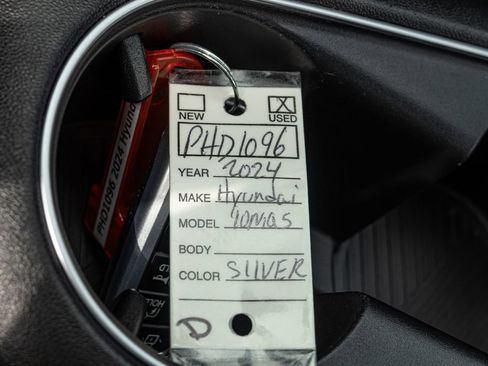 NEW X USED
PHD1096
YEAR 2024
MAKE Hyundai
MODEL IONIQ5
BODY
COLOR SILVER
D
PHD1096 2024 Hyund
HOL